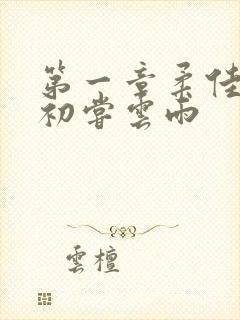 第一章柔佳
初嘗雲雨
雲檀